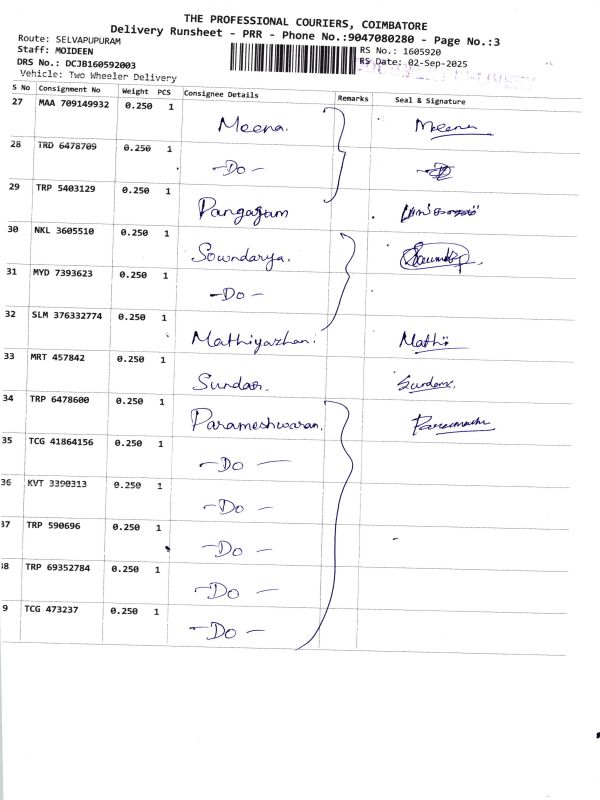 THE PROFESSIONAL COURIERS, COIMBATORE
Delivery Runsheet - PRR - Phone No.:9047080280 - Page No.:3
Route: SELVAPUPURAM
RS No.: 1605920
Staff: MOIDEEN
RS Date: 02-Sep-2025
DRS No.: DCJB160592003
Vehicle: Two Wheeler Delivery
S No Consignment No Weight PCS Consignee Details Remarks Seal & Signature
27 MAA 709149932 0.250 1
Meena. Meena
28 TRD 6478709 0.250 1
-Do-
29 TRP 5403129 0.250 1
Pangajam
30 NKL 3605510 0.250 1
Sowndarya.
31 MYD 7393623 0.250 1
-Do-
32 SLM 376332774 0.250 1
Mathiyazhan. Mathi
33 MRT 457842 0.250 1
Sundar.
34 TRP 6478600 0.250 1
Parameshwaran.
35 TCG 41864156 0.250 1
-Do-
36 KVT 3390313 0.250 1
-Do-
37 TRP 590696 0.250 1
-Do-
38 TRP 69352784 0.250 1
-Do-
9 TCG 473237 0.250 1
-Do-